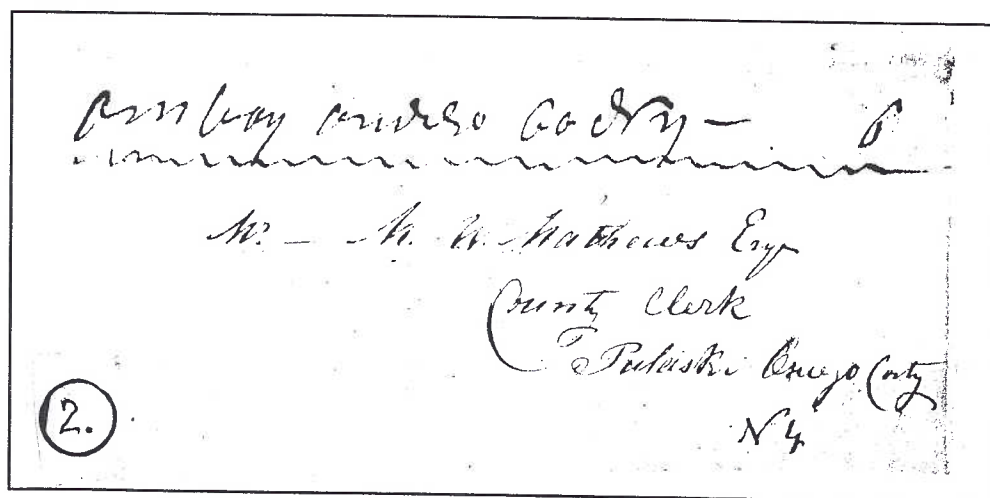 Amboy Ny — 6
Mr. — M. W. Mathews Esqr
County Clerk
Pulaski Oswego Conty
NY
2.